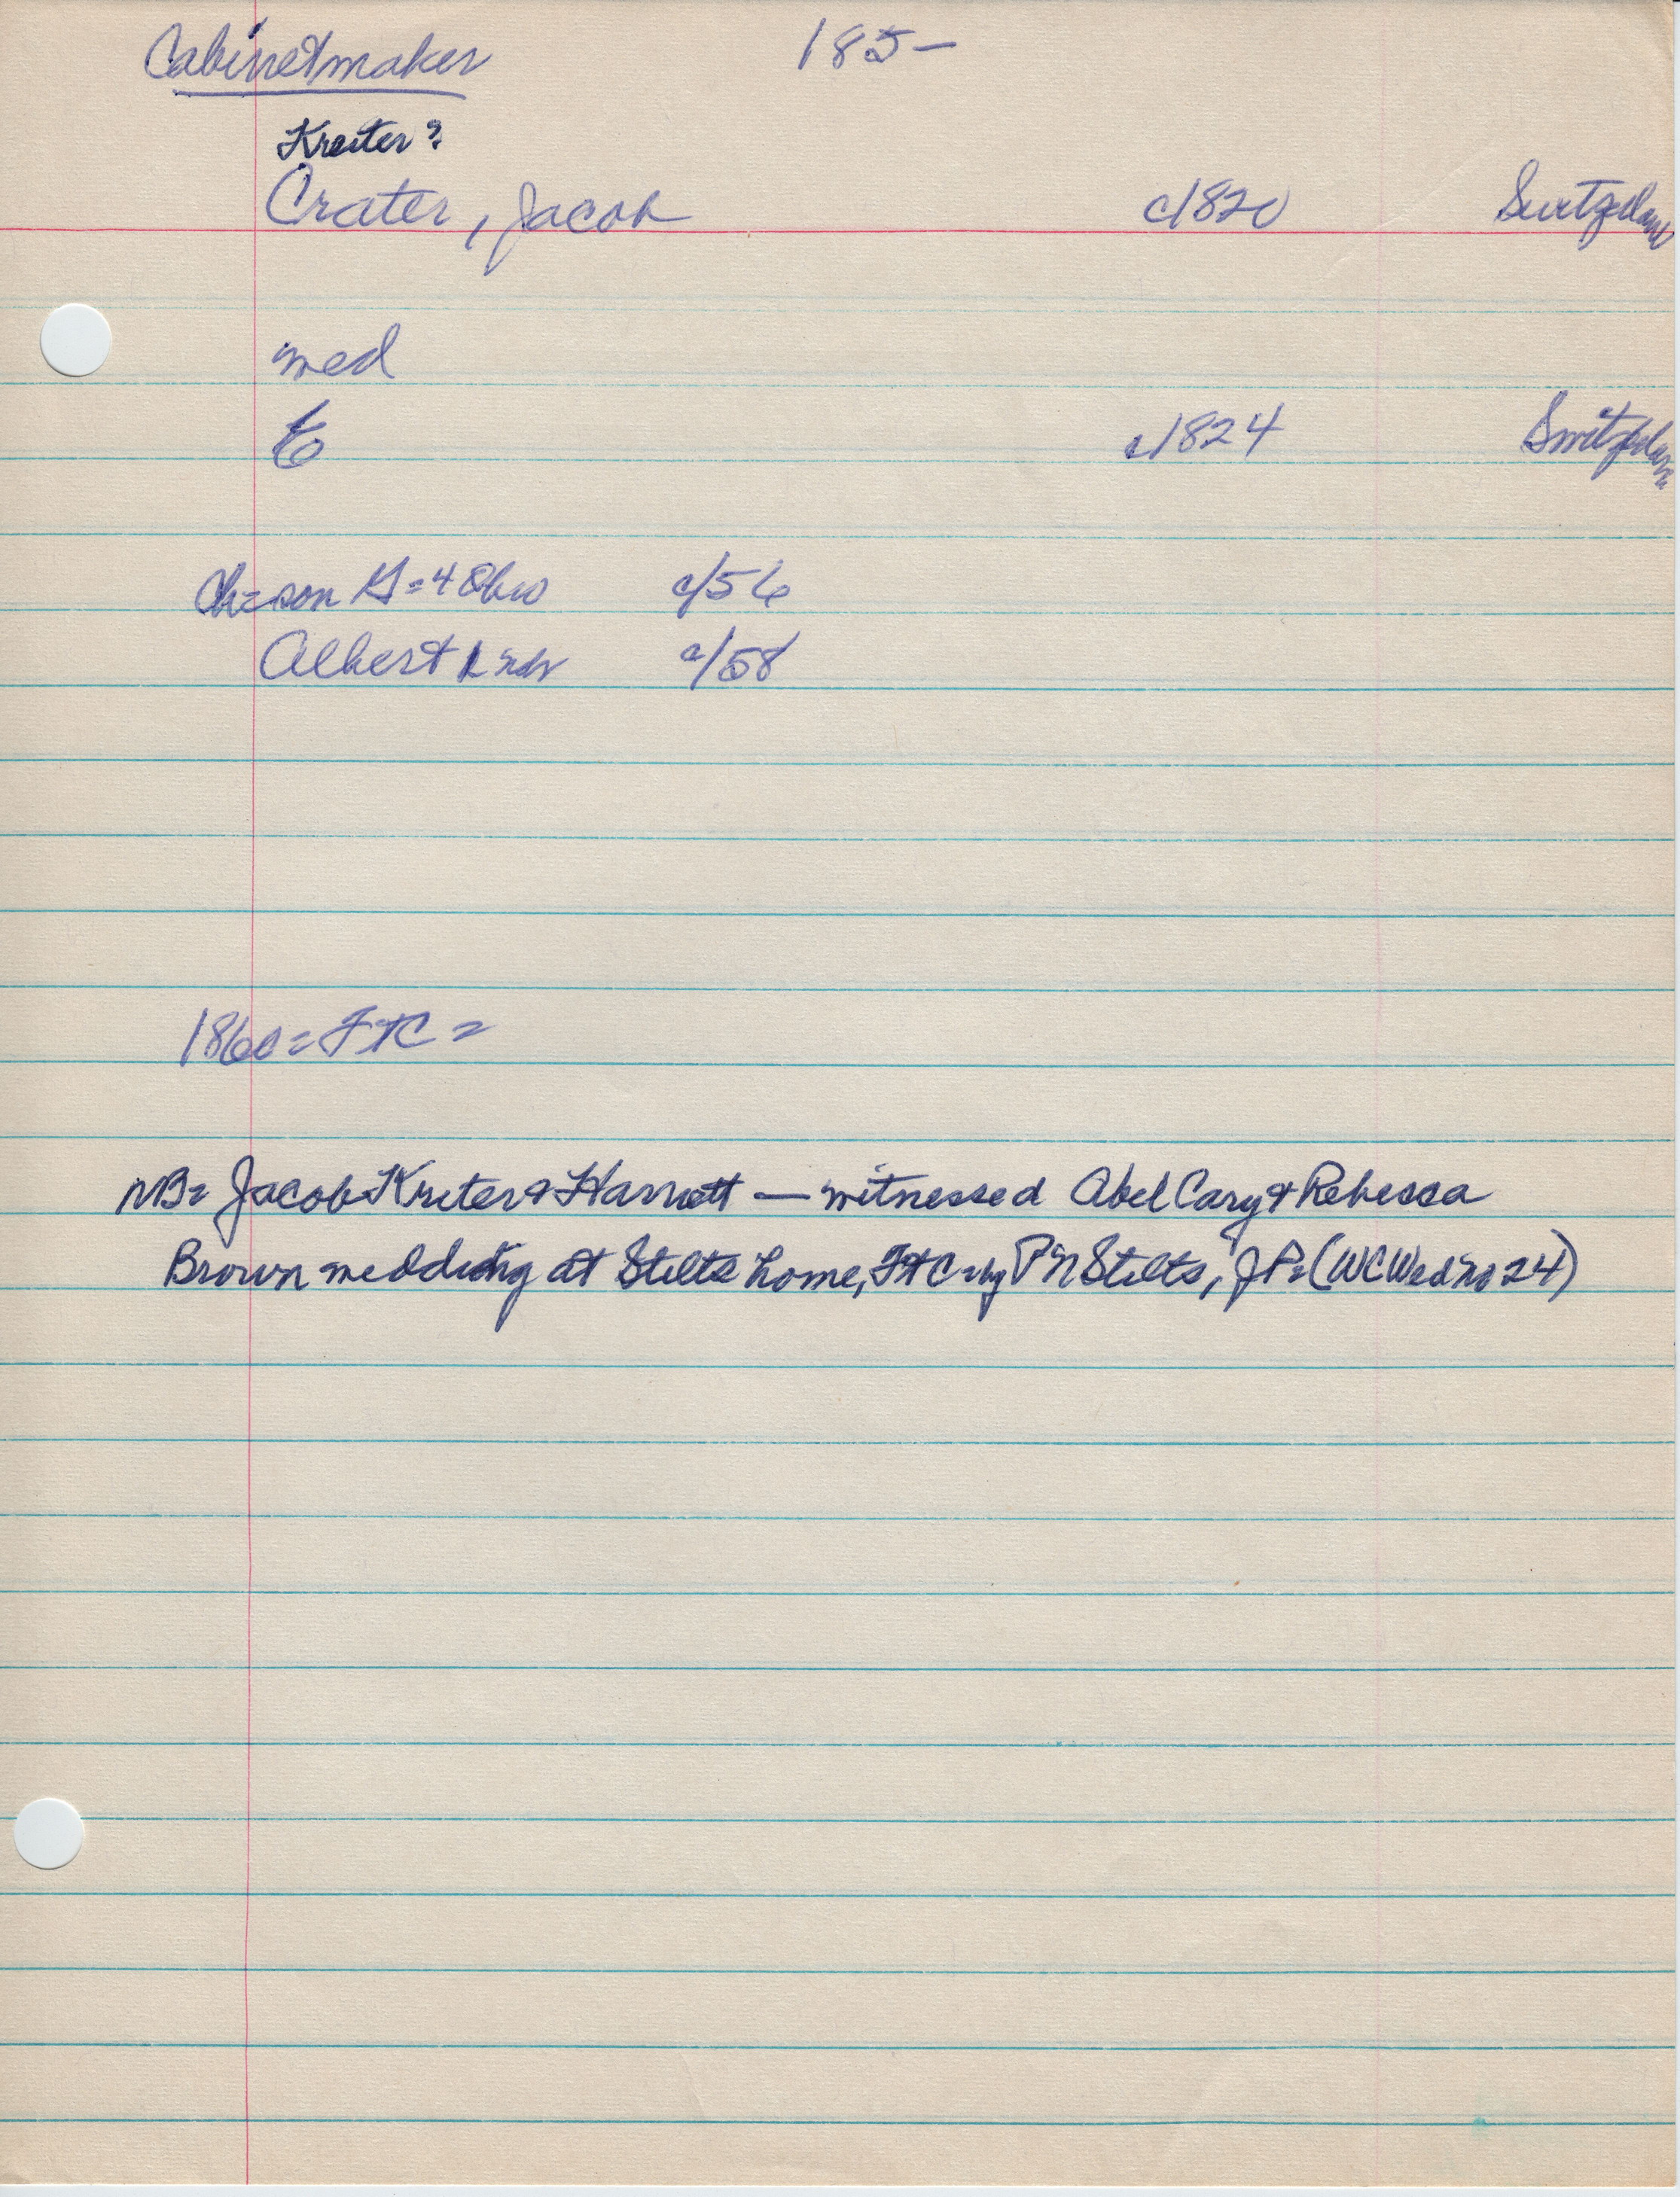 Cabinetmaker 185-
Kreiter?
Crater, Jacob c1820 Switzerland
wed
E c1824 Switzerland
Ch= son G = 4 c/56
Albert c/58
1860 = FtC =
NB= Jacob Kreter & Harriett — witnessed Abel Cary & Rebessa
Brown wedding at Stilts home, FtC = by P N Stilts, JP = (WC Wed no 24)